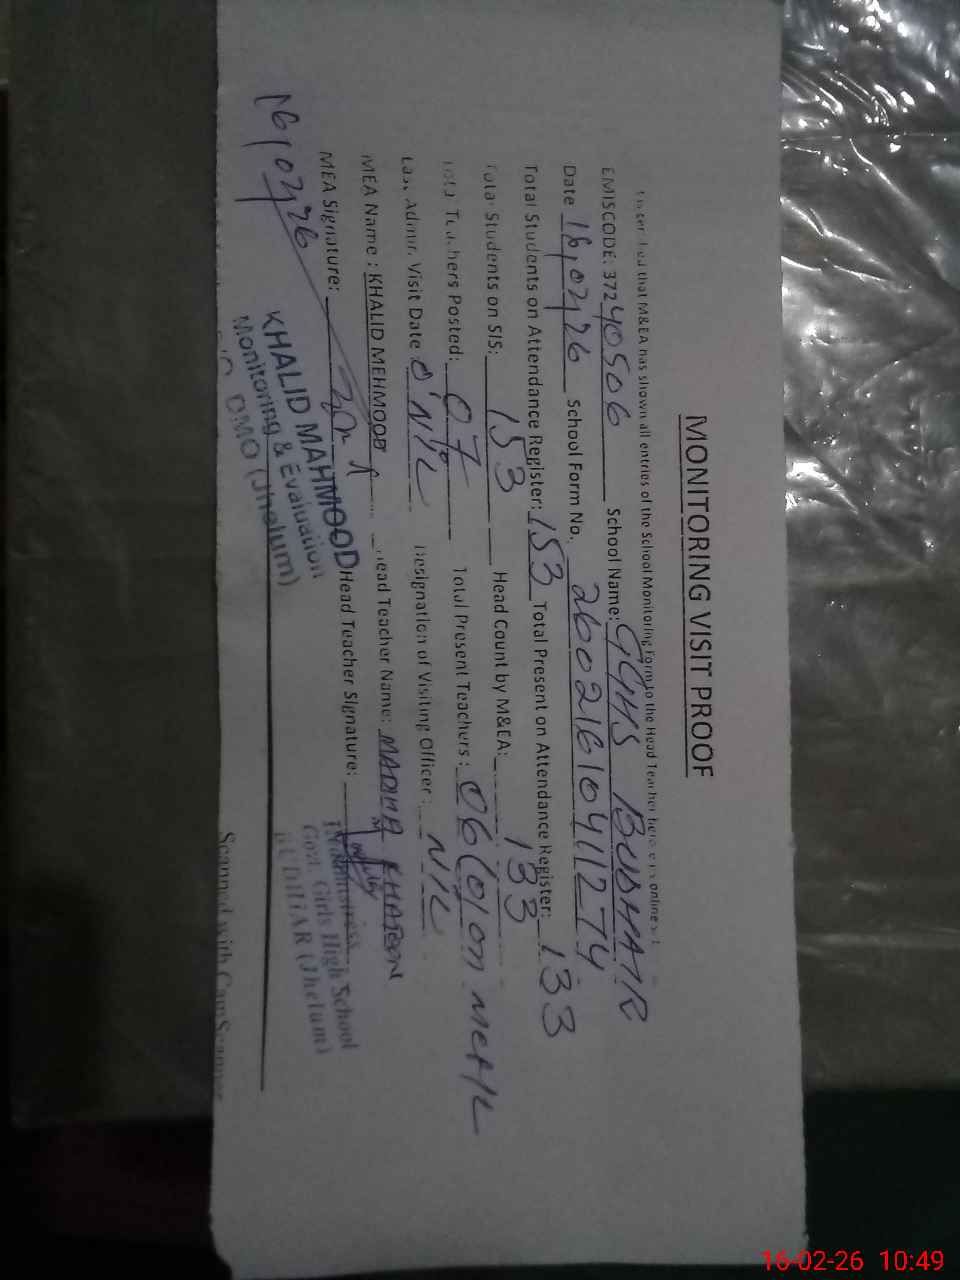 MONITORING VISIT PROOF
that M&EA has shown all entries of the School Monitoring Form to the Head Teacher before it's online
EMISCODE: 37240506 School Name: GGHS BUDHAIR
Date 16/02/26 School Form No. 260216104112774
Total Students on Attendance Register: 153 Total Present on Attendance Register: 133
Total Students on SIS: 153 Head Count by M&EA: 133
Total Teachers Posted: 07 Total Present Teachers: 06
Last Admin. Visit Date NIL Designation of Visiting Officer: NIL
MEA Name: KHALID MEHMOOD Head Teacher Name: MADIHA KHATOON
MEA Signature: Head Teacher Signature:
16/02/26
KHALID MAHMOOD
Monitoring & Evaluation
DMO (Jhelum)
Govt. Girls High School
BUDHAR (Jhelum)
Scanned with CamScanner
16-02-26 10:49